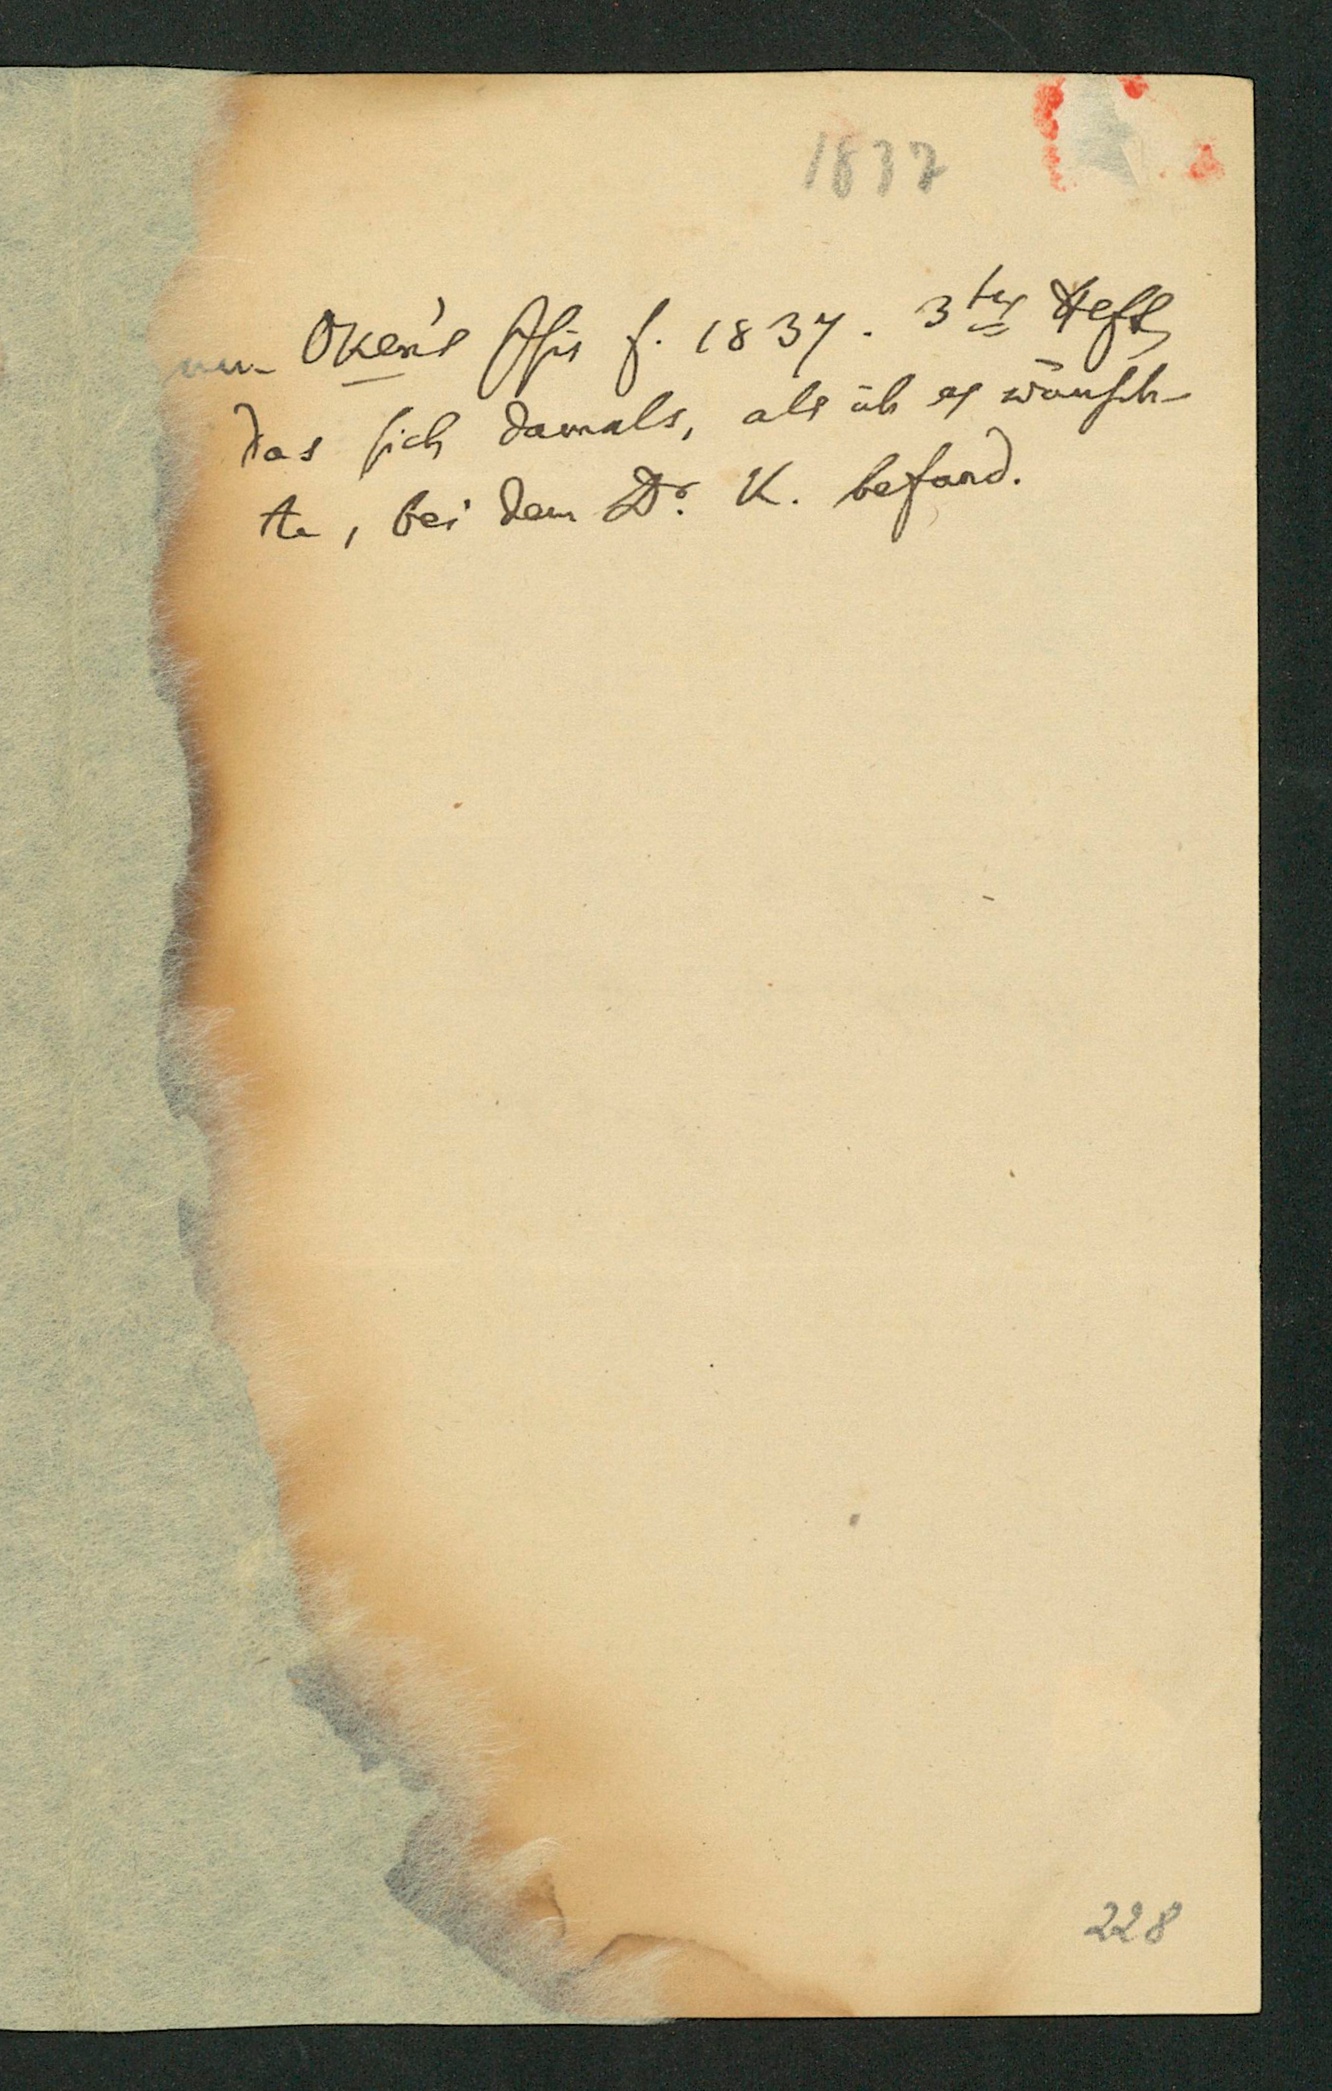 1837
Oken's Isis f. 1837. 3tes Heft,
das sich damals, als ich es wünsch-
te, bei dem Dr. K. befand.
228